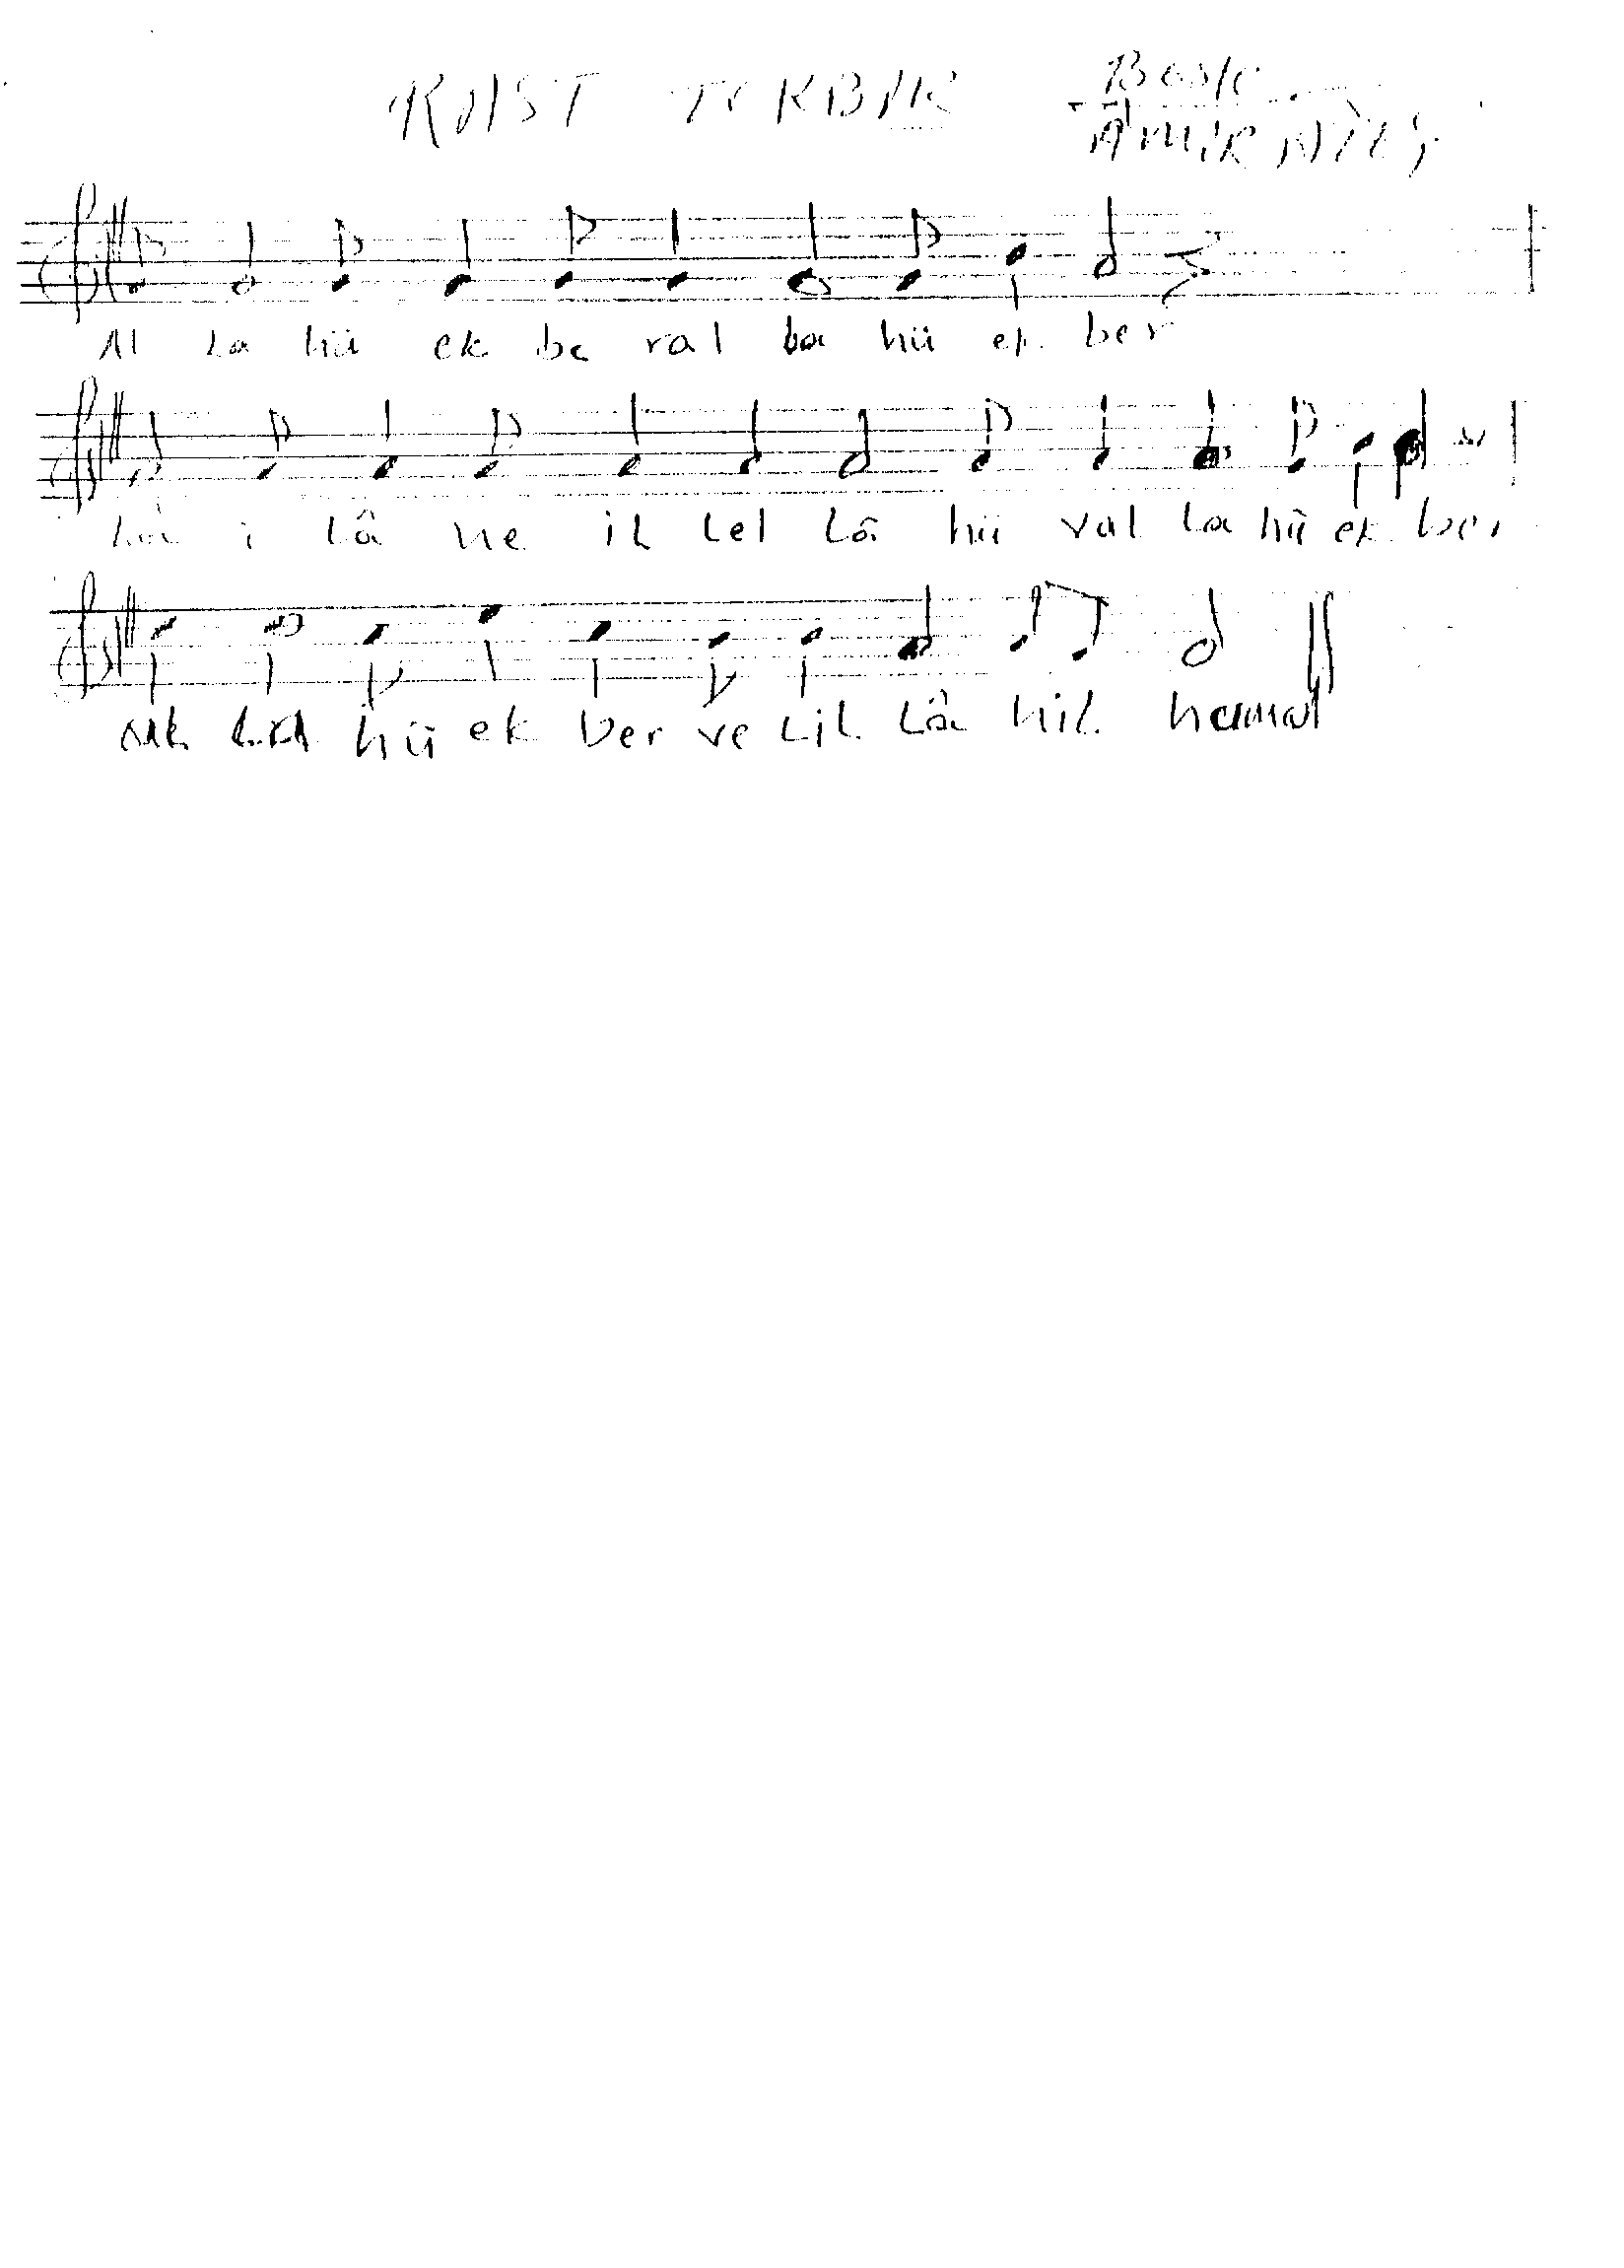 RAST TEKBİR
Beste
AMİR ATEŞ
Al La hü ek be ral La hü ek ber
Lâ i Lâ he iL Lel Lâ hü val La hü ek ber
Al La hü ek ber ve LiL Lâ hiL hamd